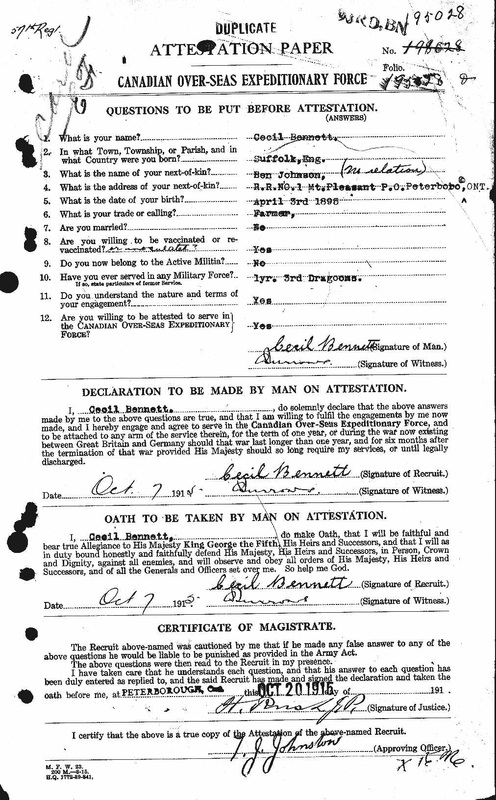 DUPLICATE
57th Regt
93RD, BN 195028
ATTESTATION PAPER
No. 198628
Folio.
CANADIAN OVER-SEAS EXPEDITIONARY FORCE
QUESTIONS TO BE PUT BEFORE ATTESTATION.
(ANSWERS)
1. What is your name? Cecil Bennett.
2. In what Town, Township, or Parish, and in
what Country were you born? Suffolk, Eng.
3. What is the name of your next-of-kin? Ben Johnson, (no relation)
4. What is the address of your next-of-kin? R.R.NO.1 Mt. Pleasant P.O. Peterboro, ONT.
5. What is the date of your birth? April 3rd 1898
6. What is your trade or calling? Farmer,
7. Are you married? No
8. Are you willing to be vaccinated or re-
vaccinated? or inoculated? Yes
9. Do you now belong to the Active Militia? No
10. Have you ever served in any Military Force? 1yr. 3rd Dragoons.
If so, state particulars of former Service.
11. Do you understand the nature and terms of
your engagement? Yes
12. Are you willing to be attested to serve in
the CANADIAN OVER-SEAS EXPEDITIONARY
FORCE? Yes
Cecil Bennett (Signature of Man.)
(Signature of Witness.)
DECLARATION TO BE MADE BY MAN ON ATTESTATION.
I, Cecil Bennett., do solemnly declare that the above answers
made by me to the above questions are true, and that I am willing to fulfil the engagements by me now
made, and I hereby engage and agree to serve in the Canadian Over-Seas Expeditionary Force, and
to be attached to any arm of the service therein, for the term of one year, or during the war now existing
between Great Britain and Germany should that war last longer than one year, and for six months after
the termination of that war provided His Majesty should so long require my services, or until legally
discharged.
Cecil Bennett (Signature of Recruit.)
Date Oct 7 1915 (Signature of Witness.)
OATH TO BE TAKEN BY MAN ON ATTESTATION.
I, Cecil Bennett., do make Oath, that I will be faithful and
bear true Allegiance to His Majesty King George the Fifth, His Heirs and Successors, and that I will as
in duty bound honestly and faithfully defend His Majesty, His Heirs and Successors, in Person, Crown
and Dignity, against all enemies, and will observe and obey all orders of His Majesty, His Heirs and
Successors, and of all the Generals and Officers set over me. So help me God.
Cecil Bennett (Signature of Recruit.)
Date Oct 7 1915 (Signature of Witness.)
CERTIFICATE OF MAGISTRATE.
The Recruit above-named was cautioned by me that if he made any false answer to any of the
above questions he would be liable to be punished as provided in the Army Act.
The above questions were then read to the Recruit in my presence.
I have taken care that he understands each question, and that his answer to each question has
been duly entered as replied to, and the said Recruit has made and signed the declaration and taken the
oath before me, at PETERBOROUGH, this OCT 20 1915 of 191 .
(Signature of Justice.)
I certify that the above is a true copy of the Attestation of the above-named Recruit.
J. J. Johnston (Approving Officer.)
M. F. W. 23.
200 M.-8-15.
H.Q. 1772-39-841.